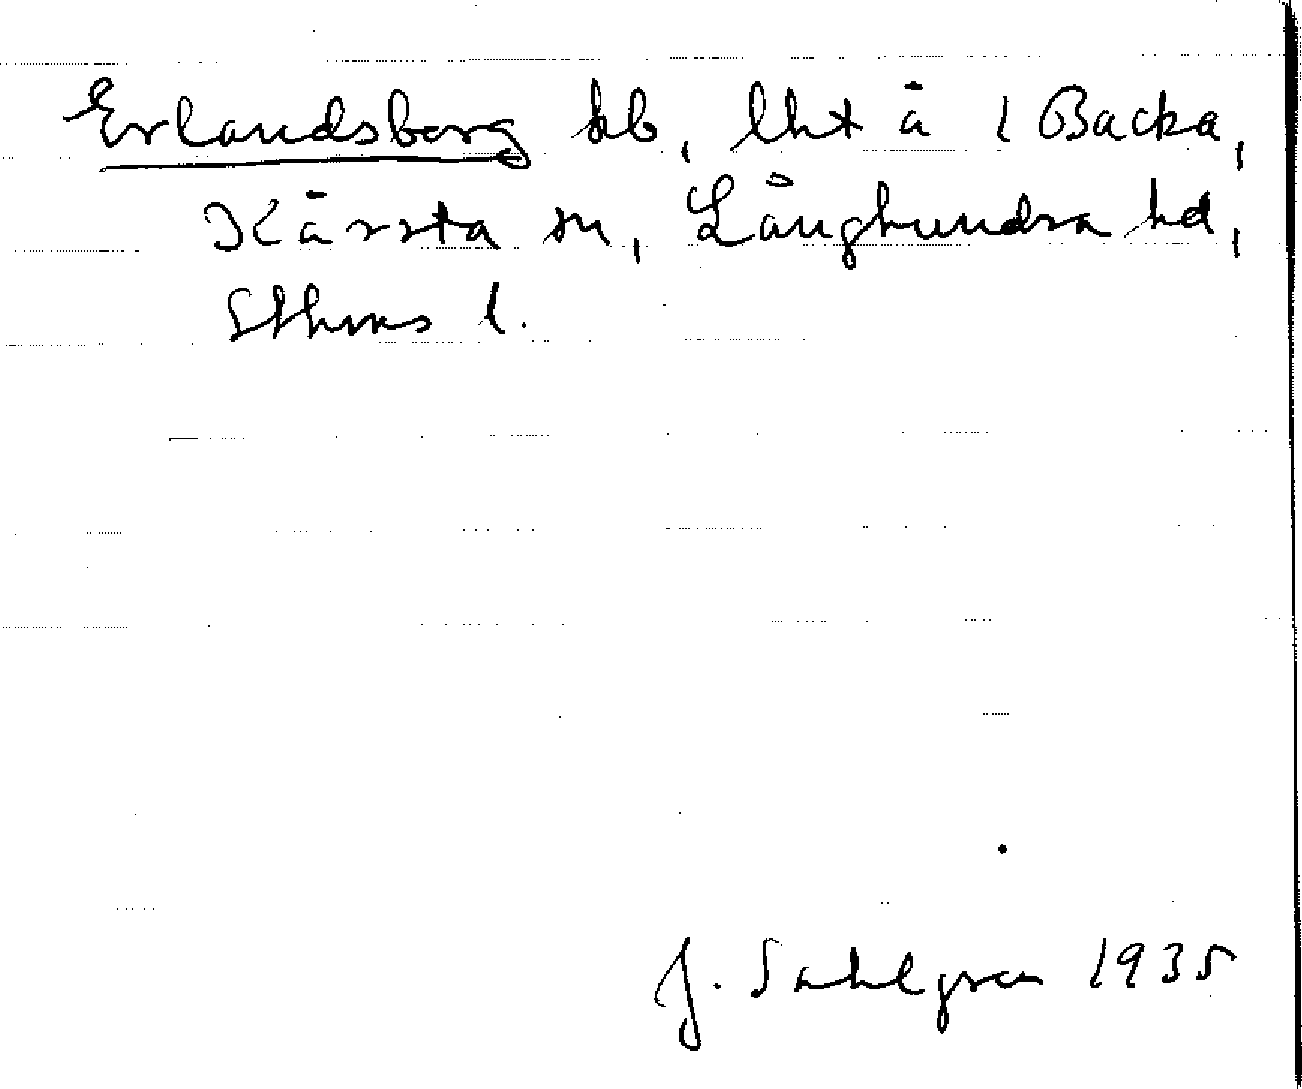 Erlandsborg bb, lht å 1 Backa,
Kårsta sn, Långhundra hd,
Sthms l.
J. Sahlgren 1935